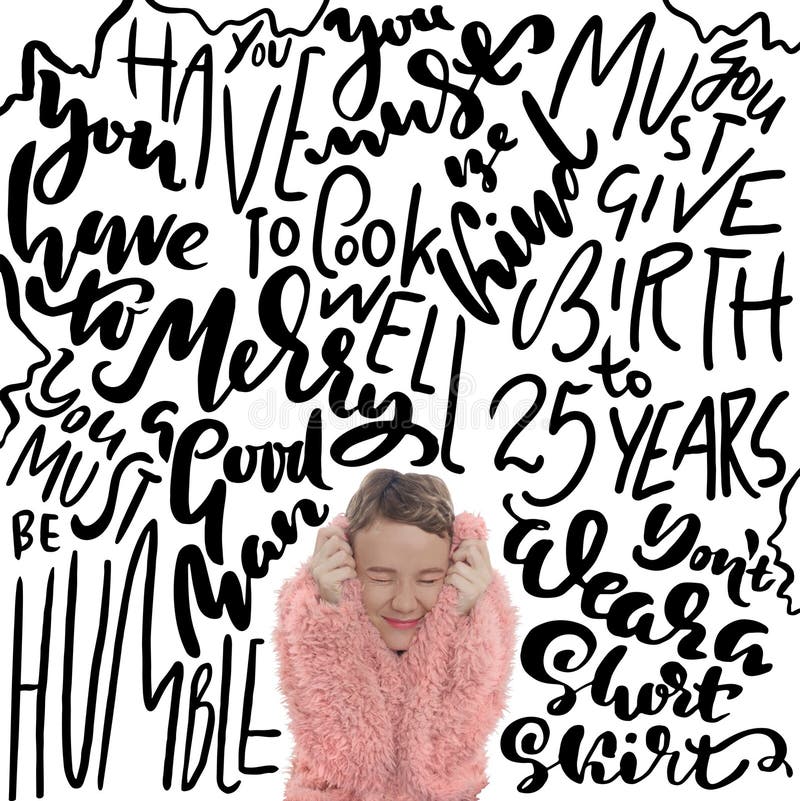 YOU
HAVE
TO look
WELL
you
must
Be
Kind
YOU
MUST
GIVE
BIRTH
to
25 YEARS
you
have
to Merry
a
Good
Man
YOU
MUST
BE
HUMBLE
Don't
Wear a
Short
Skirt
dreamstime